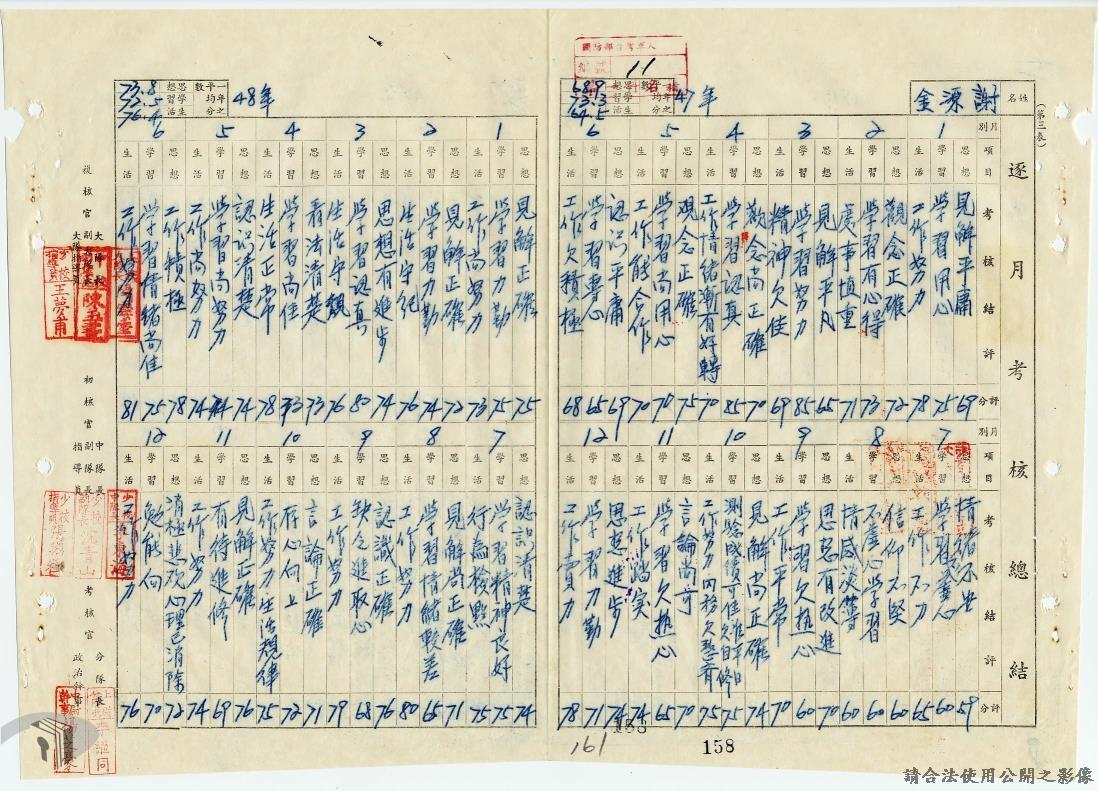 (第三表)
逐月考核總結
姓名
謝深金
47年
一年之平均分數
思想 68.9
學習 73.3
生活 64.5
月別 1 2 3 4 5 6
項目 思想 學習 生活 思想 學習 生活 思想 學習 生活 思想 學習 生活 思想 學習 生活 思想 學習 生活
考核結評
見解平庸
學習用心
工作努力
觀念正確
學習有心得
處事慎重
見解平凡
學習努力
精神欠佳
觀念尚正確
學習認真
工作情緒漸有好轉
觀念正確
學習尚用心
工作能合作
認識平庸
學習費心
工作欠積極
評分 69 75 78 72 73 71 65 85 69 70 85 70 75 70 70 69 65 68
月別 7 8 9 10 11 12
項目 思想 學習 生活 思想 學習 生活 思想 學習 生活 思想 學習 生活 思想 學習 生活 思想 學習 生活
考核結評
工作不力
信仰不堅
不虛心學習
情感淡薄
思想有改進
學習欠熱心
工作平常
見解尚正確
工作努力內務欠整齊
言論尚可
學習欠熱心
工作踏實
思想進步
學習力勤
工作賣力
評分 59 60 65 60 60 60 70 60 70 74 75 75 70 65 74 74 71 78
48年
一年之平均分數
思想 73.8
學習 72.5
生活 76.4
月別 1 2 3 4 5 6
項目 思想 學習 生活 思想 學習 生活 思想 學習 生活 思想 學習 生活 思想 學習 生活 思想 學習 生活
考核結評
見解正確
學習努力勤
工作尚努力
見解正確
學習努力勤
生活守紀
思想有進步
學習認真
生活守規
看法清楚
學習尚佳
生活正常
認識清楚
學習尚努力
工作尚努力
工作積極
學習情緒尚佳
工作努力
評分 75 75 73 72 74 76 74 80 76 73 73 78 74 74 74 78 75 81
月別 7 8 9 10 11 12
項目 思想 學習 生活 思想 學習 生活 思想 學習 生活 思想 學習 生活 思想 學習 生活 思想 學習 生活
考核結評
認識清楚
學習精神良好
行為檢點
見解尚正確
學習情緒較差
工作努力
認識正確
缺乏進取心
工作努力
言論正確
存心向上
工作努力生活規律
見解正確
有待進修
工作努力
消極悲觀心理已消除
勉能向
工作努力
評分 74 75 75 71 65 80 76 68 79 71 72 75 76 69 74 72 70 76
複核官
大隊長
副大隊長
大隊指導員
初核官
中隊長
副隊長
指導員
考核官
分隊長
政治幹事
11
158
161
158
請合法使用公開之影像